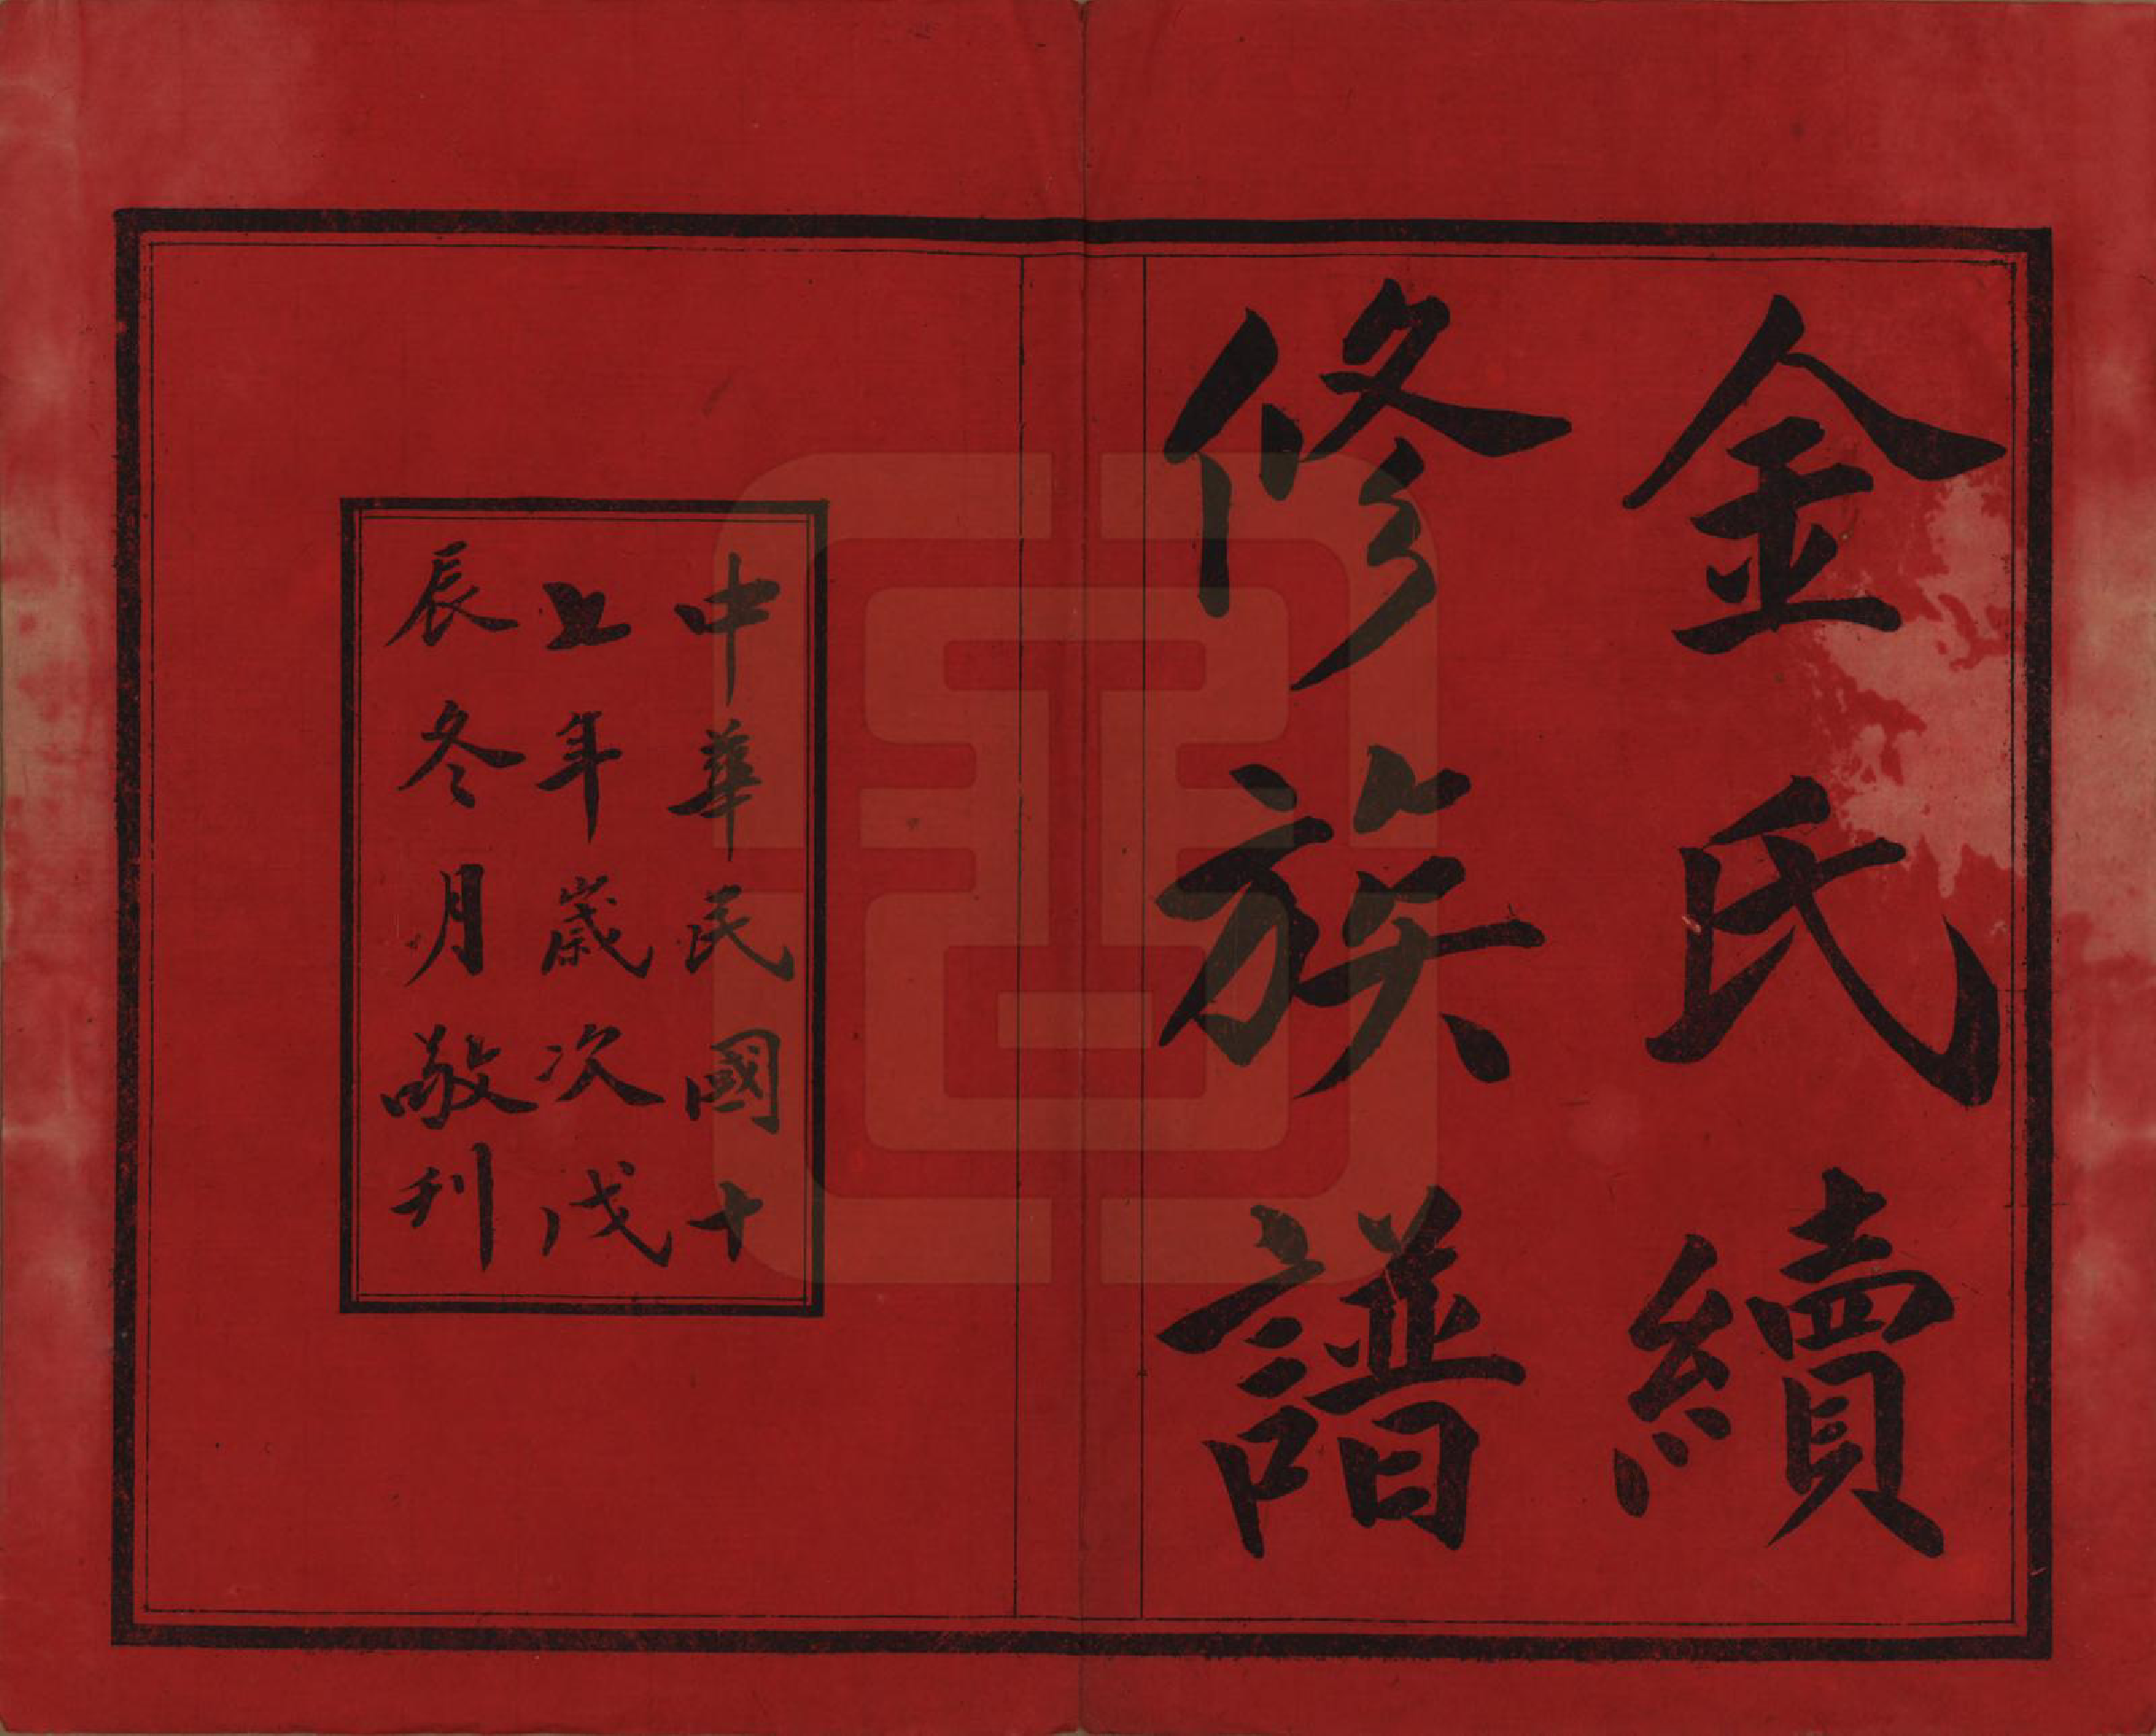 金氏續
修族譜
中華民國十
七年歲次戊
辰冬月敬刊